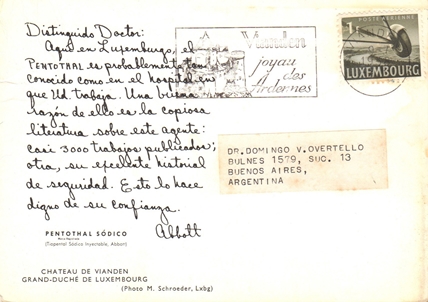 Distinguido Doctor:
Aquí en Luxemburgo, el
PENTOTHAL es probablemente tan
conocido como en el hospital en
que Ud trabaja. Una buena
razón de ello es la copiosa
literatura sobre este agente:
casi 3000 trabajos publicados;
otra, su excelente historial
de seguridad. Esto lo hace
digno de su confianza.
Abbott
PENTOTHAL SÓDICO
(Tiopental Sódico Inyectable, Abbott)
CHATEAU DE VIANDEN
GRAND-DUCHÉ DE LUXEMBOURG
(Photo M. Schroeder, Lxbg)
Vianden
joyau
des
Ardennes
POSTE AÉRIENNE
LUXEMBOURG
DR. DOMINGO V. OVERTELLO
BULNES 1579, SUC. 13
BUENOS AIRES,
ARGENTINA